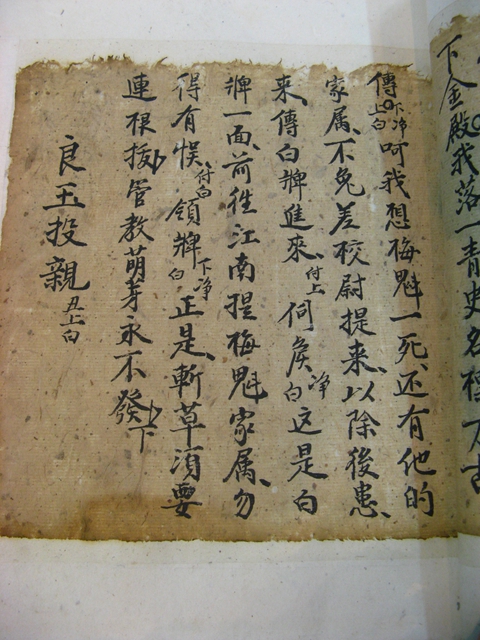 下金殿我落一青史名標万古
傳下净上白呵我想梅魁一死还有他的
家属不免差校尉提来以除後患
来傳白牌進来付上伺候净白这是白
牌一面前往江南捏梅魁家属勿
得有悮付白領牌下净白正是斬草須要
連根拔管教萌芽永不發下
良玉投親丑上白